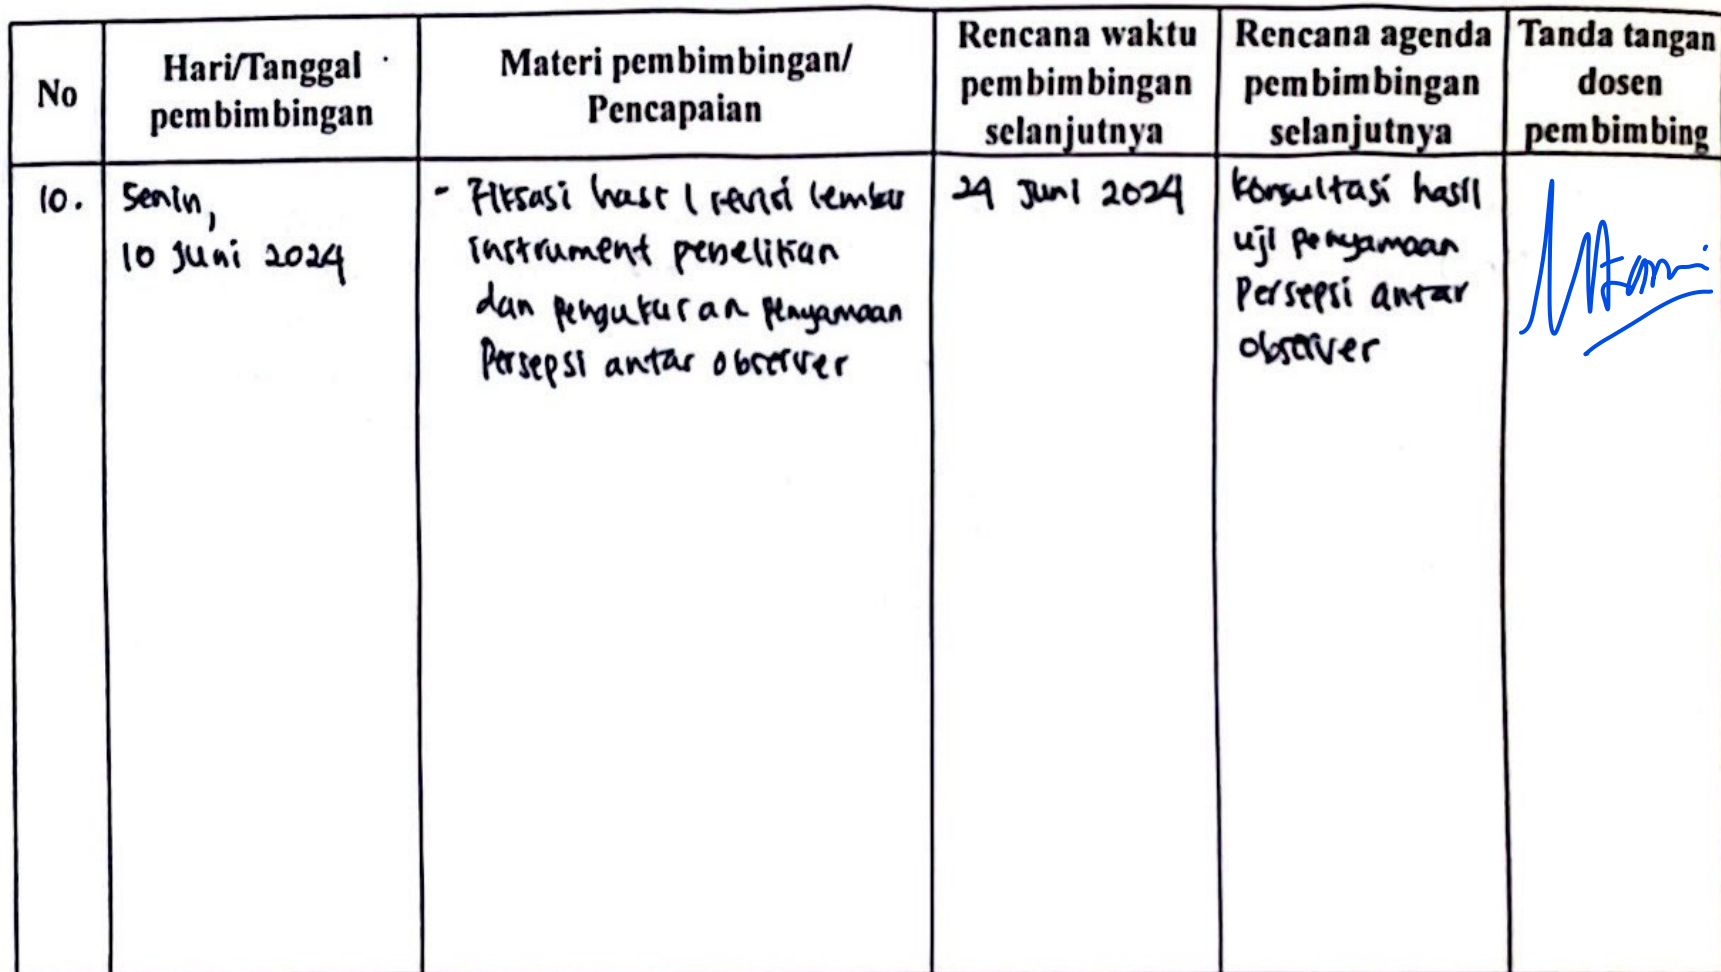 No
Hari/Tanggal
pembimbingan
Materi pembimbingan/
Pencapaian
Rencana waktu
pembimbingan
selanjutnya
Rencana agenda
pembimbingan
selanjutnya
Tanda tangan
dosen
pembimbing
10.
Senin,
10 Juni 2024
- Fiksasi hasil revisi lembar
instrument penelitian
dan pengukuran penyamaan
Persepsi antar observer
24 Juni 2024
Konsultasi hasil
uji penyamaan
Persepsi antar
observer